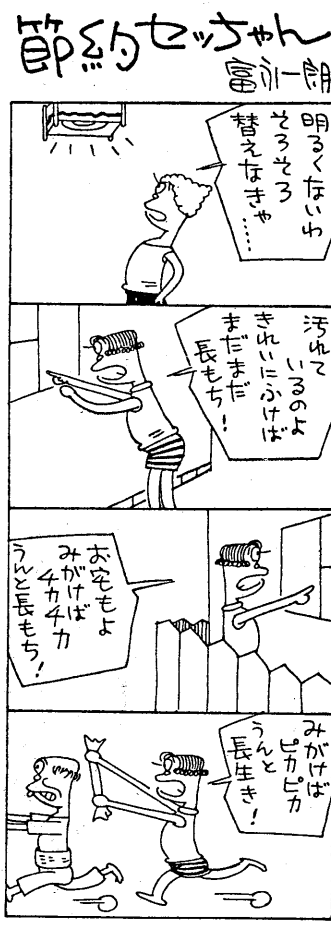 節約セッちゃん
富永一朗
明るくないわ
そろそろ
替えなきゃ
……
汚れて
いるのよ
きれいにふけば
まだまだ
長もち！
お宅もよ
みがけば
チカチカ
うんと長もち！
みがけば
ピカピカ
うんと
長生き！